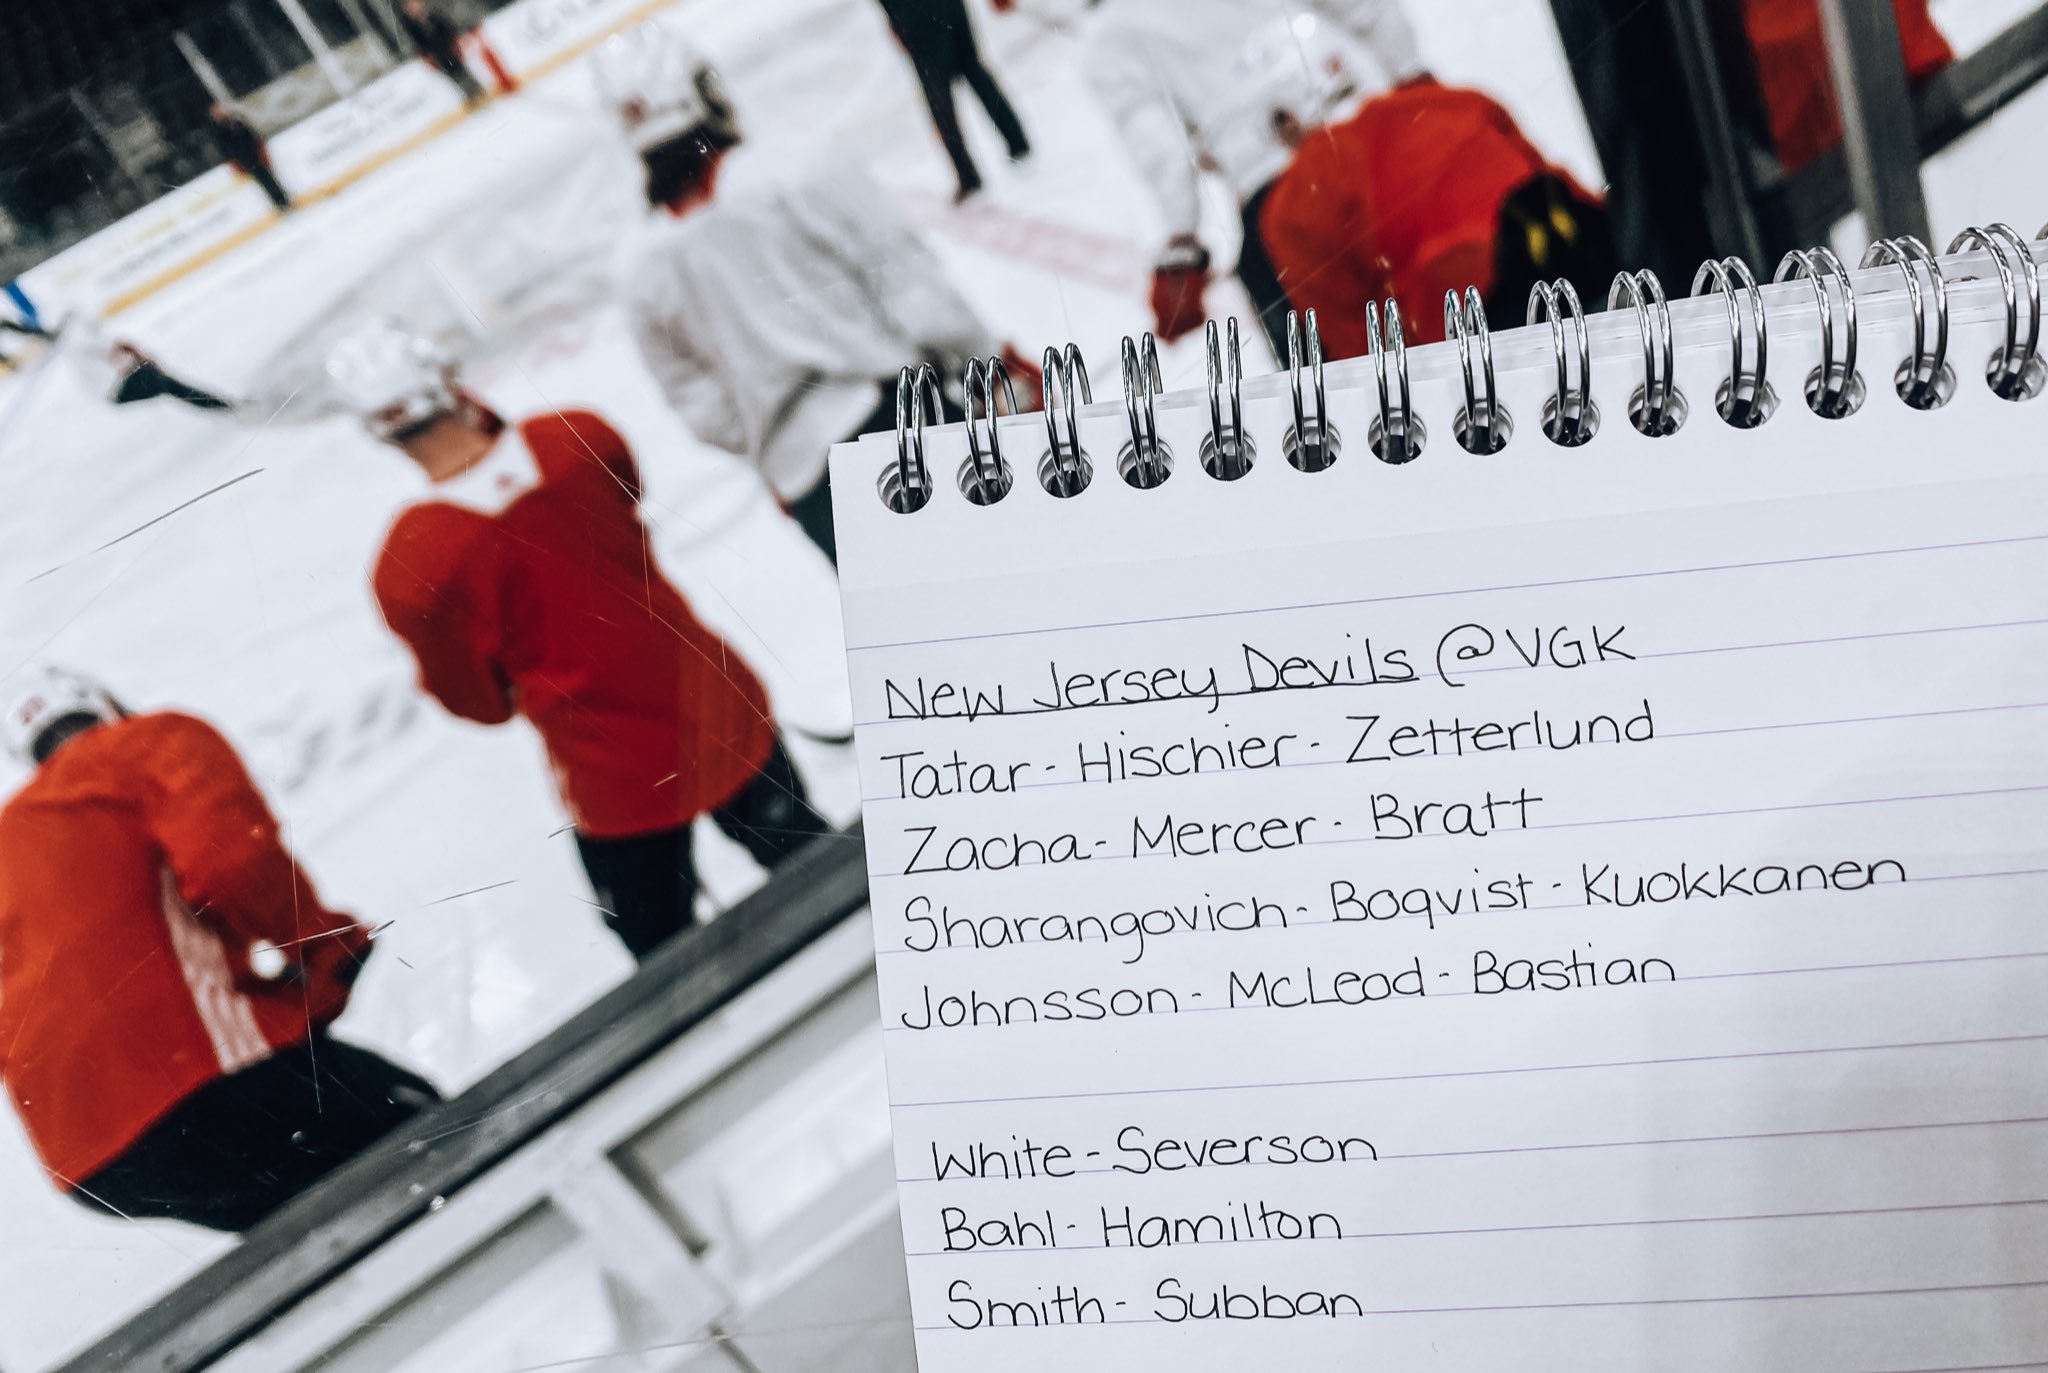 New Jersey Devils @VGK
Tatar - Hischier - Zetterlund
Zacha - Mercer - Bratt
Sharangovich - Boqvist - Kuokkanen
Johnsson - McLeod - Bastian
White - Severson
Bahl - Hamilton
Smith - Subban